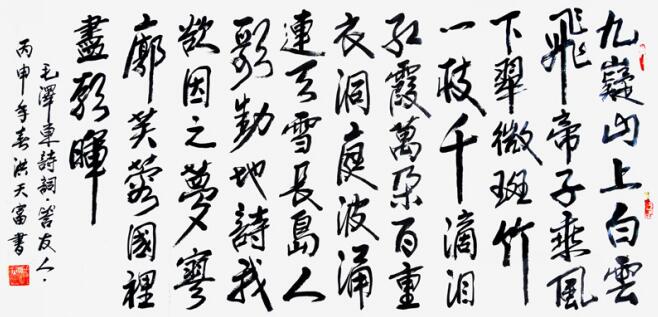 九嶷山上白雲
飛帝子乘風
下翠微斑竹
一枝千滴泪
紅霞萬朵百重
衣洞庭波涌
連天雪長島人
歌動地詩我
欲因之夢寥
廓芙蓉國裡
盡朝暉
毛澤東詩詞·答友人·
丙申年春洪天富書